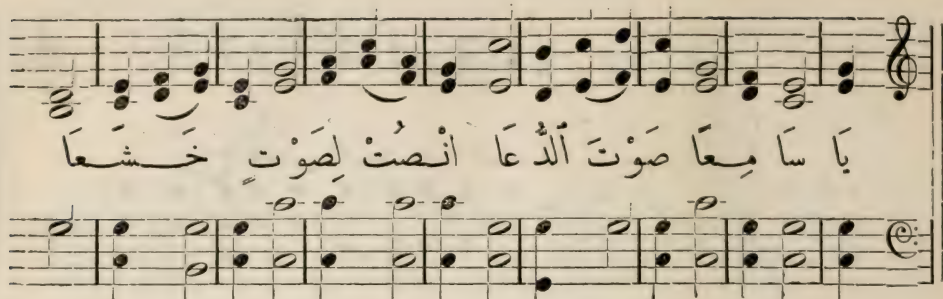 يَا سَا مِعًا صَوْتَ ٱلدُّعَا انْصتْ لِصَوْتٍ خَشعَا